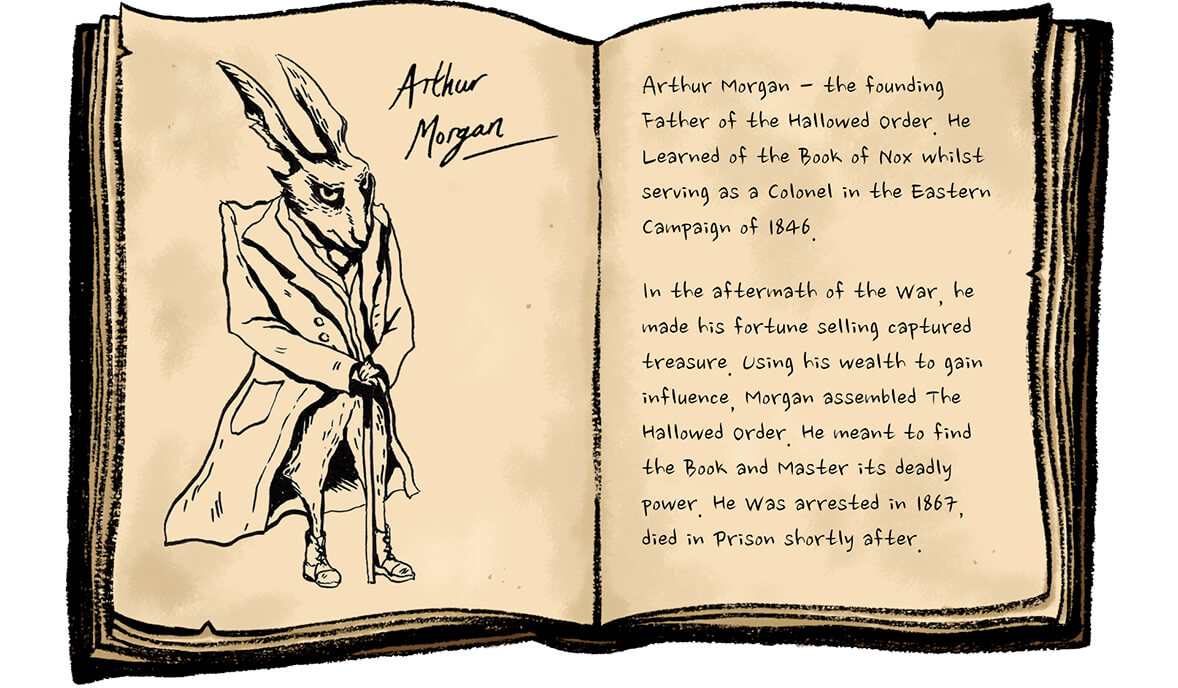 Arthur
Morgan
Arthur Morgan – the founding
Father of the Hallowed Order. He
Learned of the Book of Nox whilst
serving as a Colonel in the Eastern
Campaign of 1846.
In the aftermath of the War, he
made his fortune selling captured
treasure. Using his wealth to gain
influence, Morgan assembled The
Hallowed Order. He meant to find
the Book and Master its deadly
power. He Was arrested in 1867,
died in Prison shortly after.